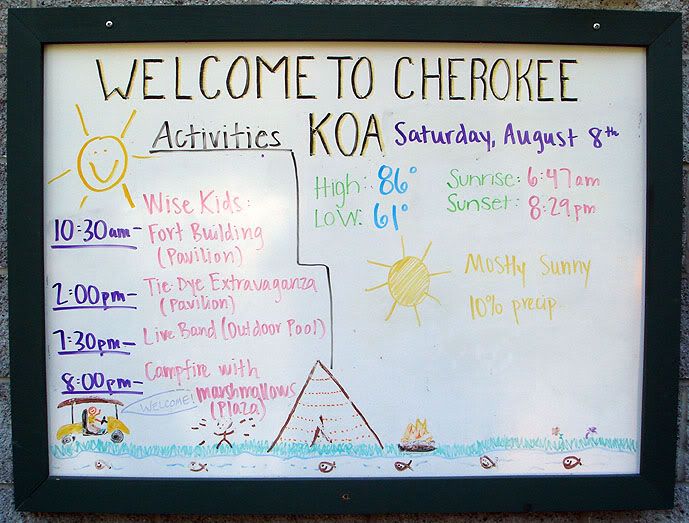 WELCOME TO CHEROKEE
KOA
Saturday, August 8th
Activities
10:30am- Wise Kids:
Fort Building
(Pavilion)
2:00pm- Tie-Dye Extravaganza
(Pavilion)
7:30pm- Live Band (Outdoor Pool)
8:00pm- Campfire with
marshmallows
(Plaza)
WELCOME!
High: 86°
Low: 61°
Sunrise: 6:47am
Sunset: 8:29pm
Mostly Sunny
10% precip.